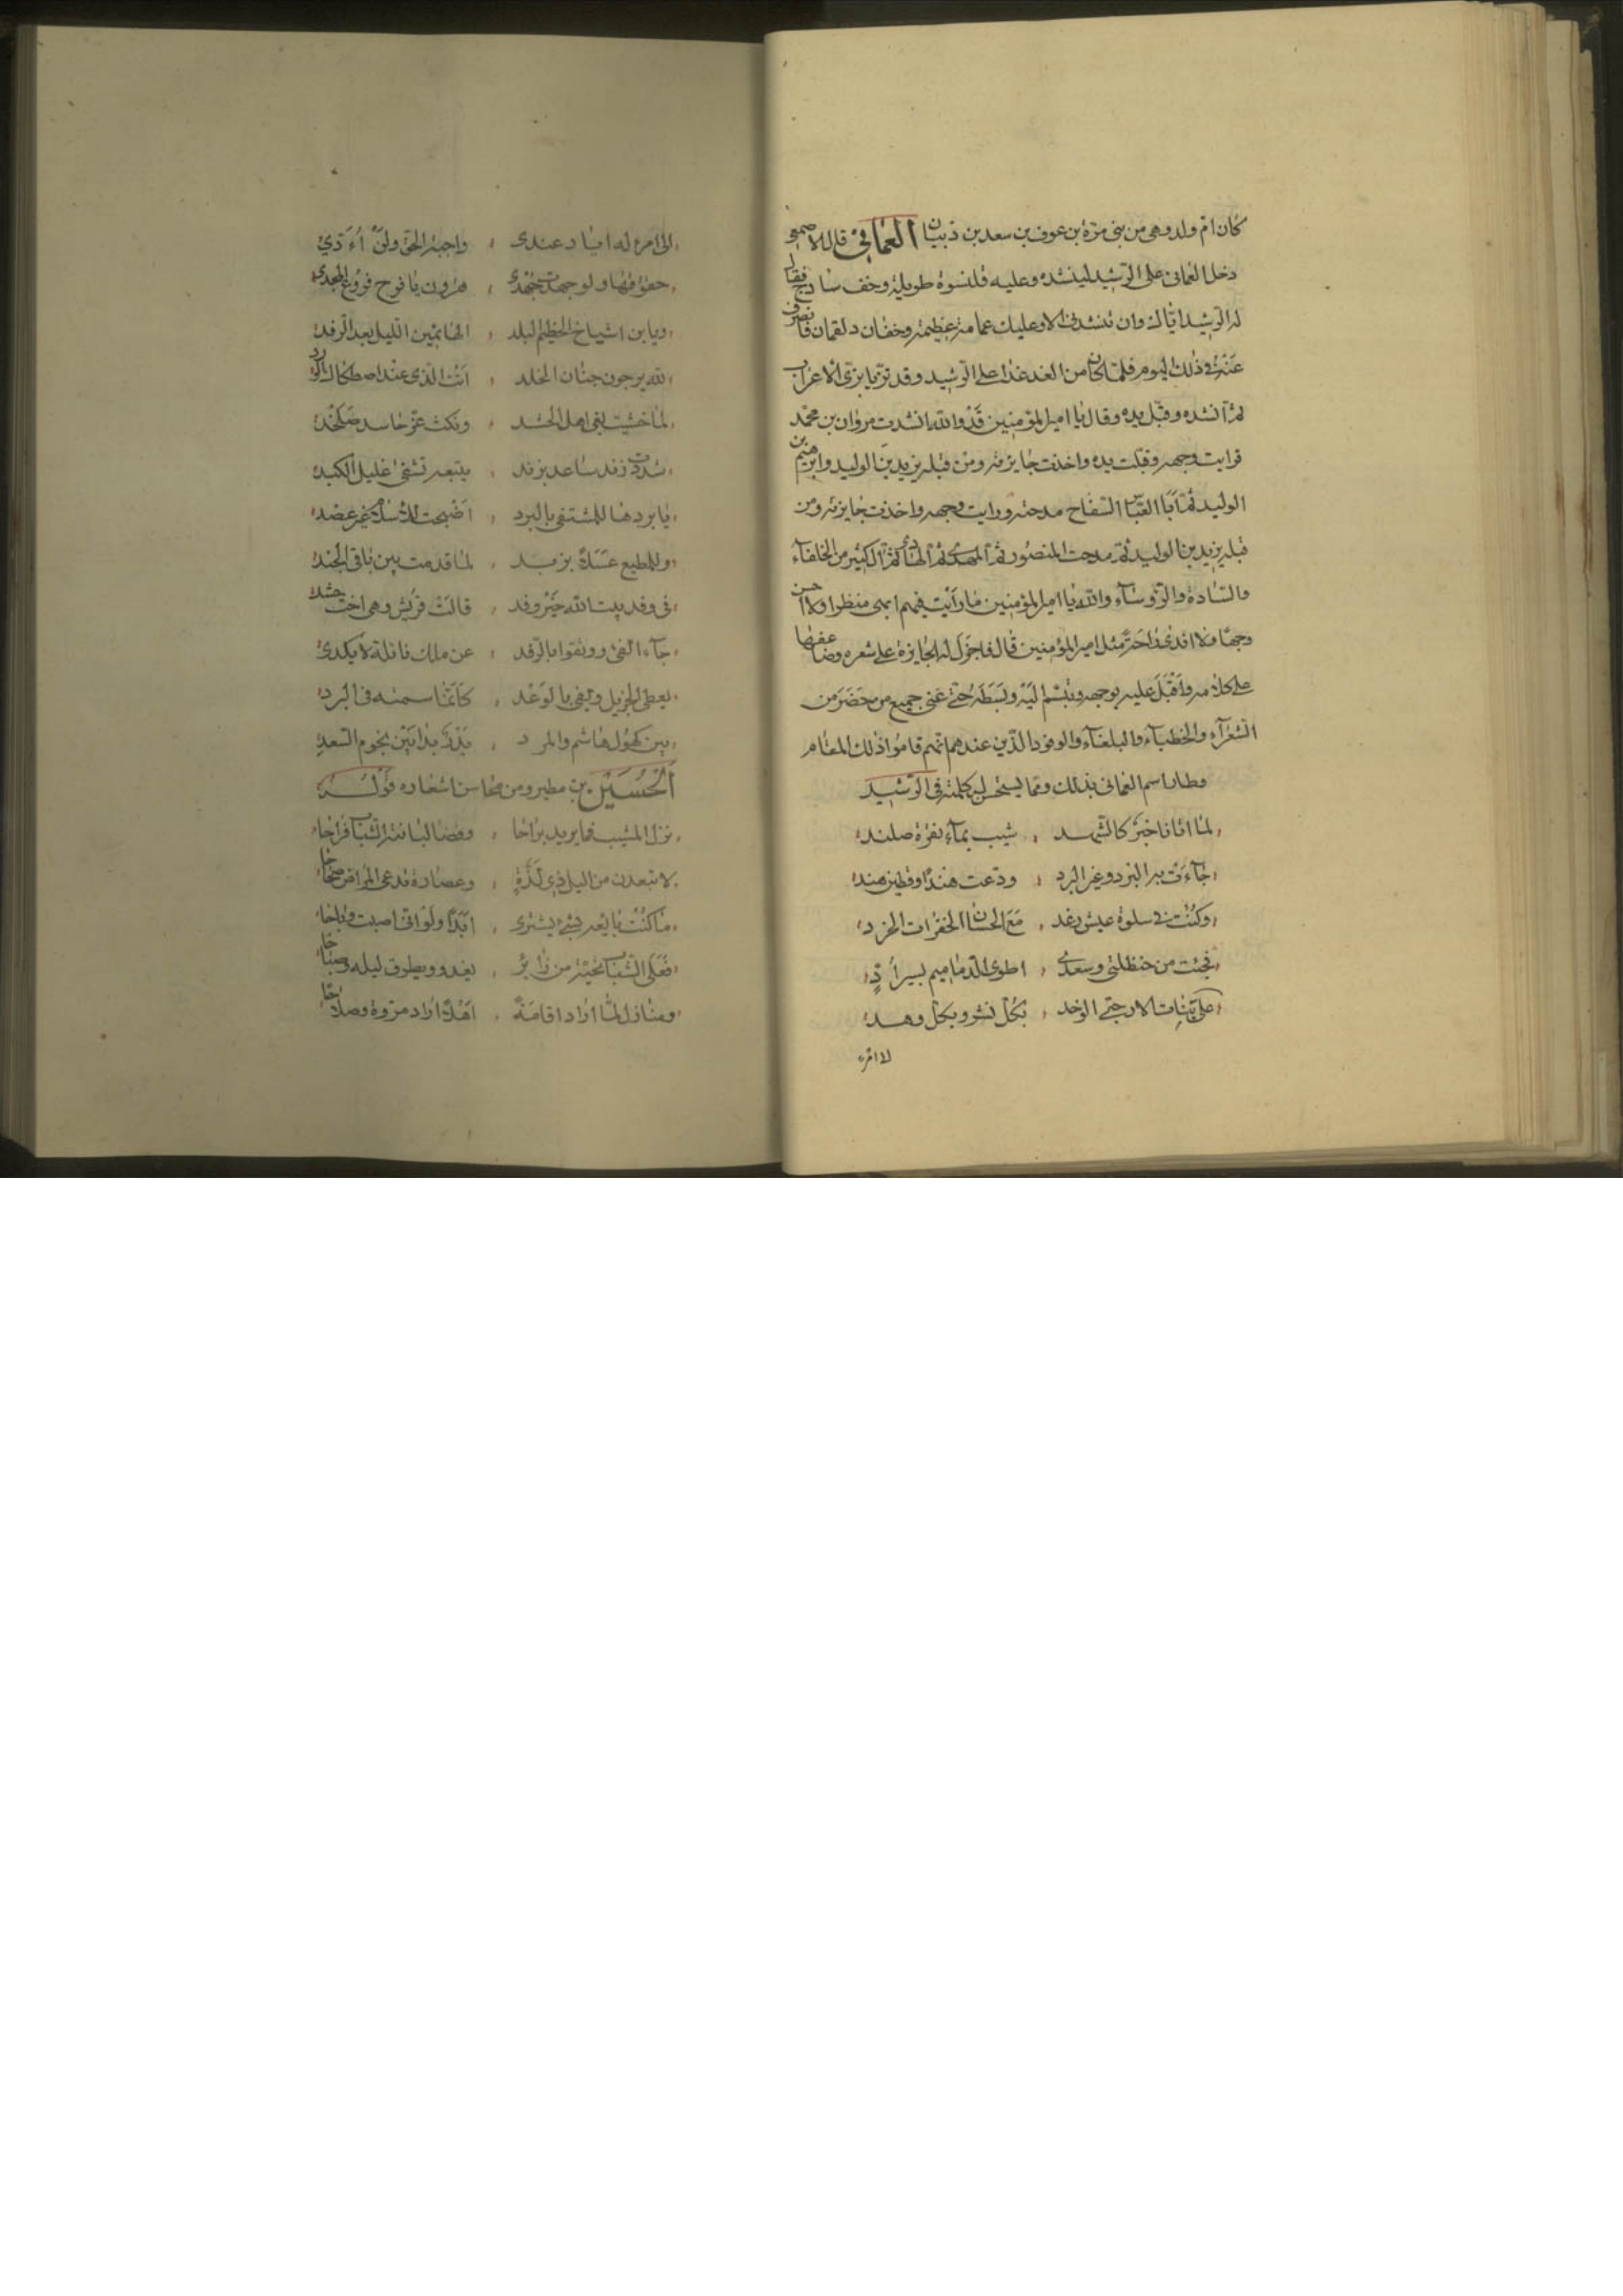 كان ام ولد وهى من بنى مرّة بن عوف بن سعد بن ذبيان العُمانىّ قال الاصمعى
دخل العمانى على الرّشيد لينشده وعليه قلنسوة طويلة وخف ساذج فقال
له الرشيد ايّاك وان تنشدنى الا وعليك عمامة عظيمة وخفان دلقمان فانصرف
عنه فى ذلك اليوم فلمّا كان من الغد غدا على الرّشيد وقد تزيا بزىّ الاعراب
ثمّ انشده وقبّل يده وقال يا امير المؤمنين قد والله انشدت مروان بن محمّد
فرايت وجهه وقبّلت يده واخذت جايزته ومن قبله يزيد بن الوليد وابرهيم بن
الوليد ثمّ ابا العبّاس السّفاح مدحته ورايت وجهه واخذت جايزته ومن
قبله يزيد بن الوليد ثمّ مدحت المنصور ثمّ المهدى ثمّ الهادى ثمّ الكثير من الخلفآء
والسّادة والرّوسآء والله يا امير المؤمنين ما رأيت فيهم ابهى منظرا ولا احسن
وجها ولا اندى راحة مثل امير المؤمنين قال فاجزل له الجايزة على شعره وضاعفها
على كلامه واقبل عليه بوجهه وتبسّم اليه وبسّطه حتّى غنى جميع من حضر من
الشعرآء والخطبآء والبلغآء والوفود الّذين عندهم انّهم قاموا ذلك المقام
وطار اسم العمانى بذلك وممّا يستحسن له كلمته فى الرّشيد
لمّا اتانا خبر كالشّهد ، شيب بمآء نقرة صلند
جآءت به البرد وغير البرد ، ودّعت هندًا وقطين هند
وكنت فى سلوة عيش رغد ، مع الحسان الخفرات الخرد
فجئت من حنظلتى وسعدى ، اطوى الدّماميم بسير ادٍّ
على بنات الارحبى الوخد ، بكل نشر وبكل وهد
لا امرء
الى امرء له اياد عندى ، واجبة الحق ولمّا اُءَدّي
حقوقها ولو جهدت جهدى ، هرون يا فرخ فروع المجدى
ويا بن اشياخ الحطيم البلد ، القائمين اللّيل بعد الرقد
لله يرجون جنان الخلد ، انت الّذى عند اصطكاك الورد
لمّا خشيت بغى اهل الحسد ، وكنت عن حاسد
شددت زند ساعد بزند ، ببيعة تشفى غليل الكبد
يا بردها للمشتفى بالبرد ، اصبحت للاسلام خير عضد
وللمطيع عسلا بزبد ، لمّا قدمت بين باقى الجند
فى وفد بيت الله خير وفد ، قالت قريش وهى اخت حشد
جآء الغنى ووثقوا بالرّفد ، عن ملك نائلة لا يكدى
يعطى الجزيل ويفى بالوعد ، كانّما سمنه فى البرد
بين كهول هاشم والمرد ، بدر بدا بين نجوم السّعد
اَلْحُسَيْن بن مطير ومن محاسن اشعاره قَوْلُهُ
نزل المشيب فما يريد براحا ، وقضا لبانته الشّباب فراحا
لا تبعدن من اليل ذى لذّةٍ ، وعصارة تدعى المراض صحاحا
ما كنت بائعه بشئ يشترى ، ابدًا ولو انّى اصبت رباحا
فعلى الشّباب تحيّة من زائر ، يغدو ويطرق ليله وصباحا
ومنازل لمّا اراد اقامةً ، اهلا اراد مروة وصلاحا